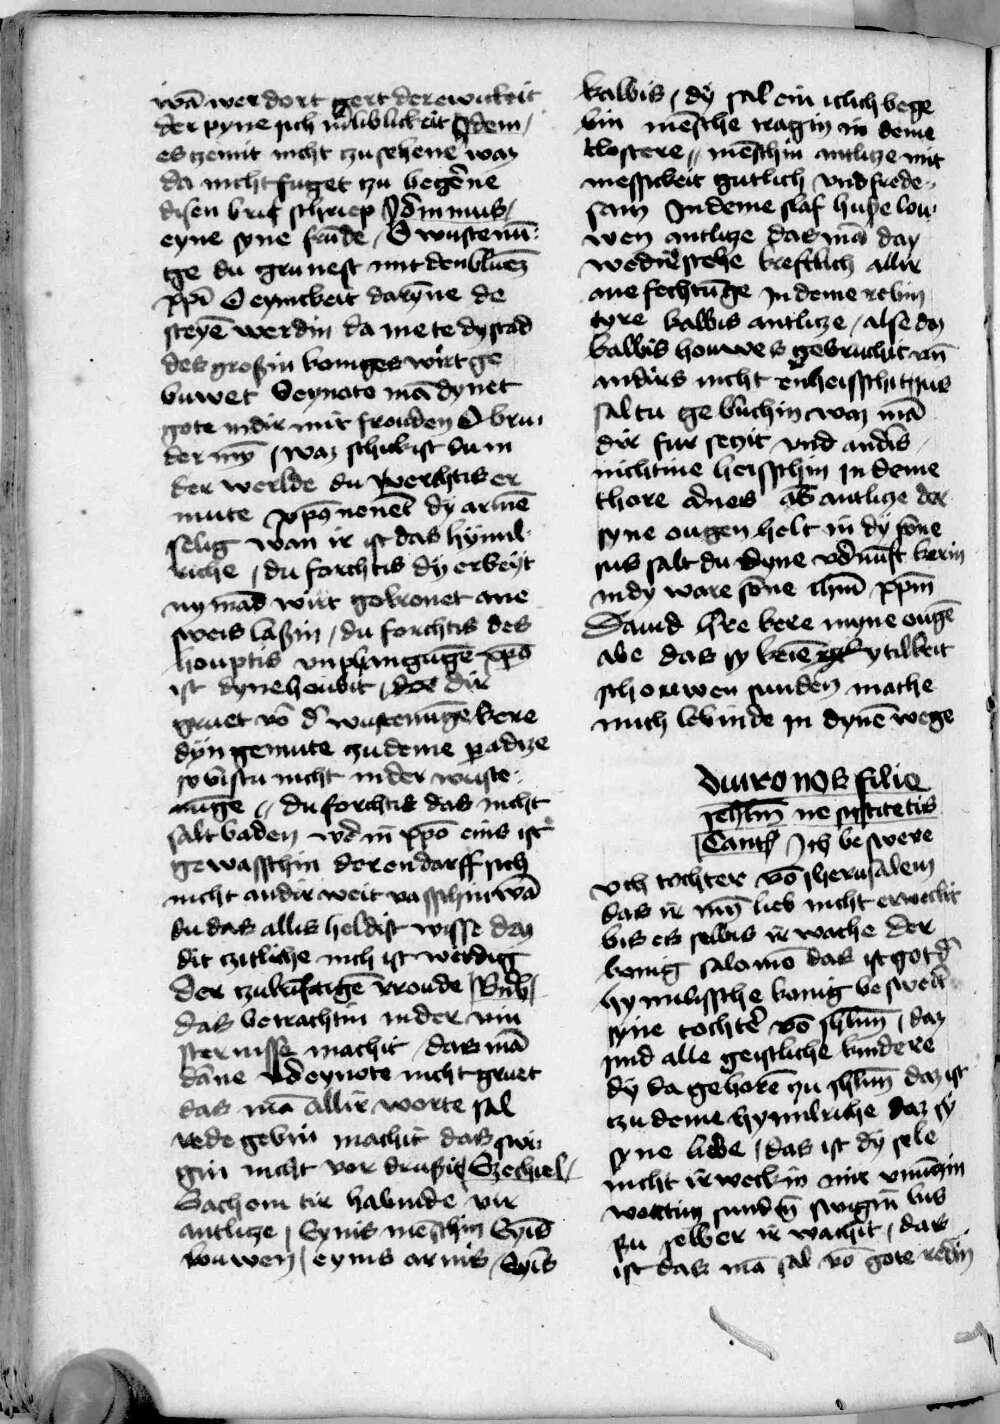 wā wer dort gert der ewickeit
der pyne sich vm̄ liblickeit Idem /
es czemit nicht czu sehene waz
da nicht fuget czu begērne
disen brif schriep Idmmus /
eyne syne frūde / O wustenū-
ge du grunest mit den blumē
xp̄i O eynickeit daryn̄e de
steyē werdin da mete dy stad
des großin koniges wirt ge
buwet O eynote mā dynet
gote in dir mit frouden O bru-
der my̅ / waz schukist du in
der werlde du vorchtis er
mute xp̄s nenēt dy armē
selig wan ir ist das hy̅ml-
riche / du forchtis dy erbeyt
ny mād wirt gekronet ane
sweis laßin / du forchtis des
houptis vnphangūge xp̄s
ist dyne houbit / dir
gruet vō d' wustenūge kere
dyn gemute czu deme paradize
so bistu nicht in der wuste-
nūge // du forchtis das nicht
salt baden wē in xp̄o eins ist
gewasschin der en darff sich
nicht andir weit wasschin wā
du das allis heldist wisse daz
dit czitliche nich ist werdig
der czukūftigē vroude / Bnb /
das betrachtin in der vin
sternisse machit das mā
dāne vō eynote nicht gruet
das mā allir worte sal
rede gebin machit das swi-
gin nicht vor drußit Ezechiel /
Sach em tir habinde vir
antlicze / Eynis mēschin Eyīs
louwen / eynis arnis / Eyīs
kalbis / dy sal ein iclich bege
bin mēsche tragin in deme
klostere // mēschin antlicze mit
messickeit gutlich vnd frede-
sam In deme slaf huße lou-
wen antlicze das mā daz
wedir stehe kreftlich allir
ane fechtūge In deme rebin
tyre kalbis antlicze / alse daz
kalbis houwes gebruchit vn̄
andirs nicht en heisschit sus
saltu gebruchin waz mā
dir fur seczit vnd andirs
nicht me heisschin In deme
thore adneis abantlicze der
syne ougen helt in dy sōne
sus salt du dyne vornūft kerin
in dy ware sōne ihm̄ xp̄m
Dauid h're kere myne ougē
abe das sy keiē ytilkeit
schouwen sunden mache
mich lebinde in dynē wege
Adiuro vos filie
ihrlm̄ ne suscitetis
Cantic Ich beswere
vch tochter vō iherusalem
das ir myn lieb nicht erweckit
bis es selbis ir wache der
konig salomō das ist got d'
hymilissche konig beswert
syne tochtēr vō ihrlm̄ / daz
sind alle geistliche kindere
dy da geborē czu ihrlm̄ daz ist
czu deme hymilriche daz sy
syne liebe / das ist dy sele
nicht irweckin mit vnnūczin
wortin sundin swigin bis
su selber ir wachit / das
ist das mā sal vō gote redin